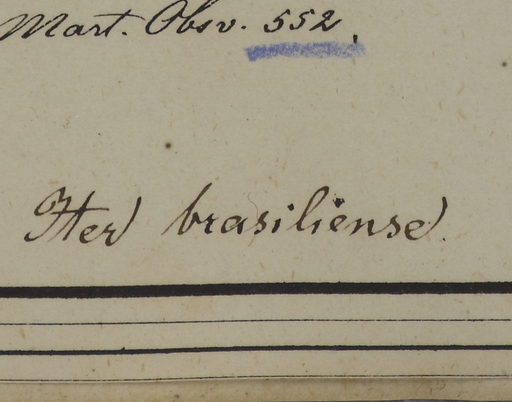 Mart. Obsv. 552.
Iter brasiliense.